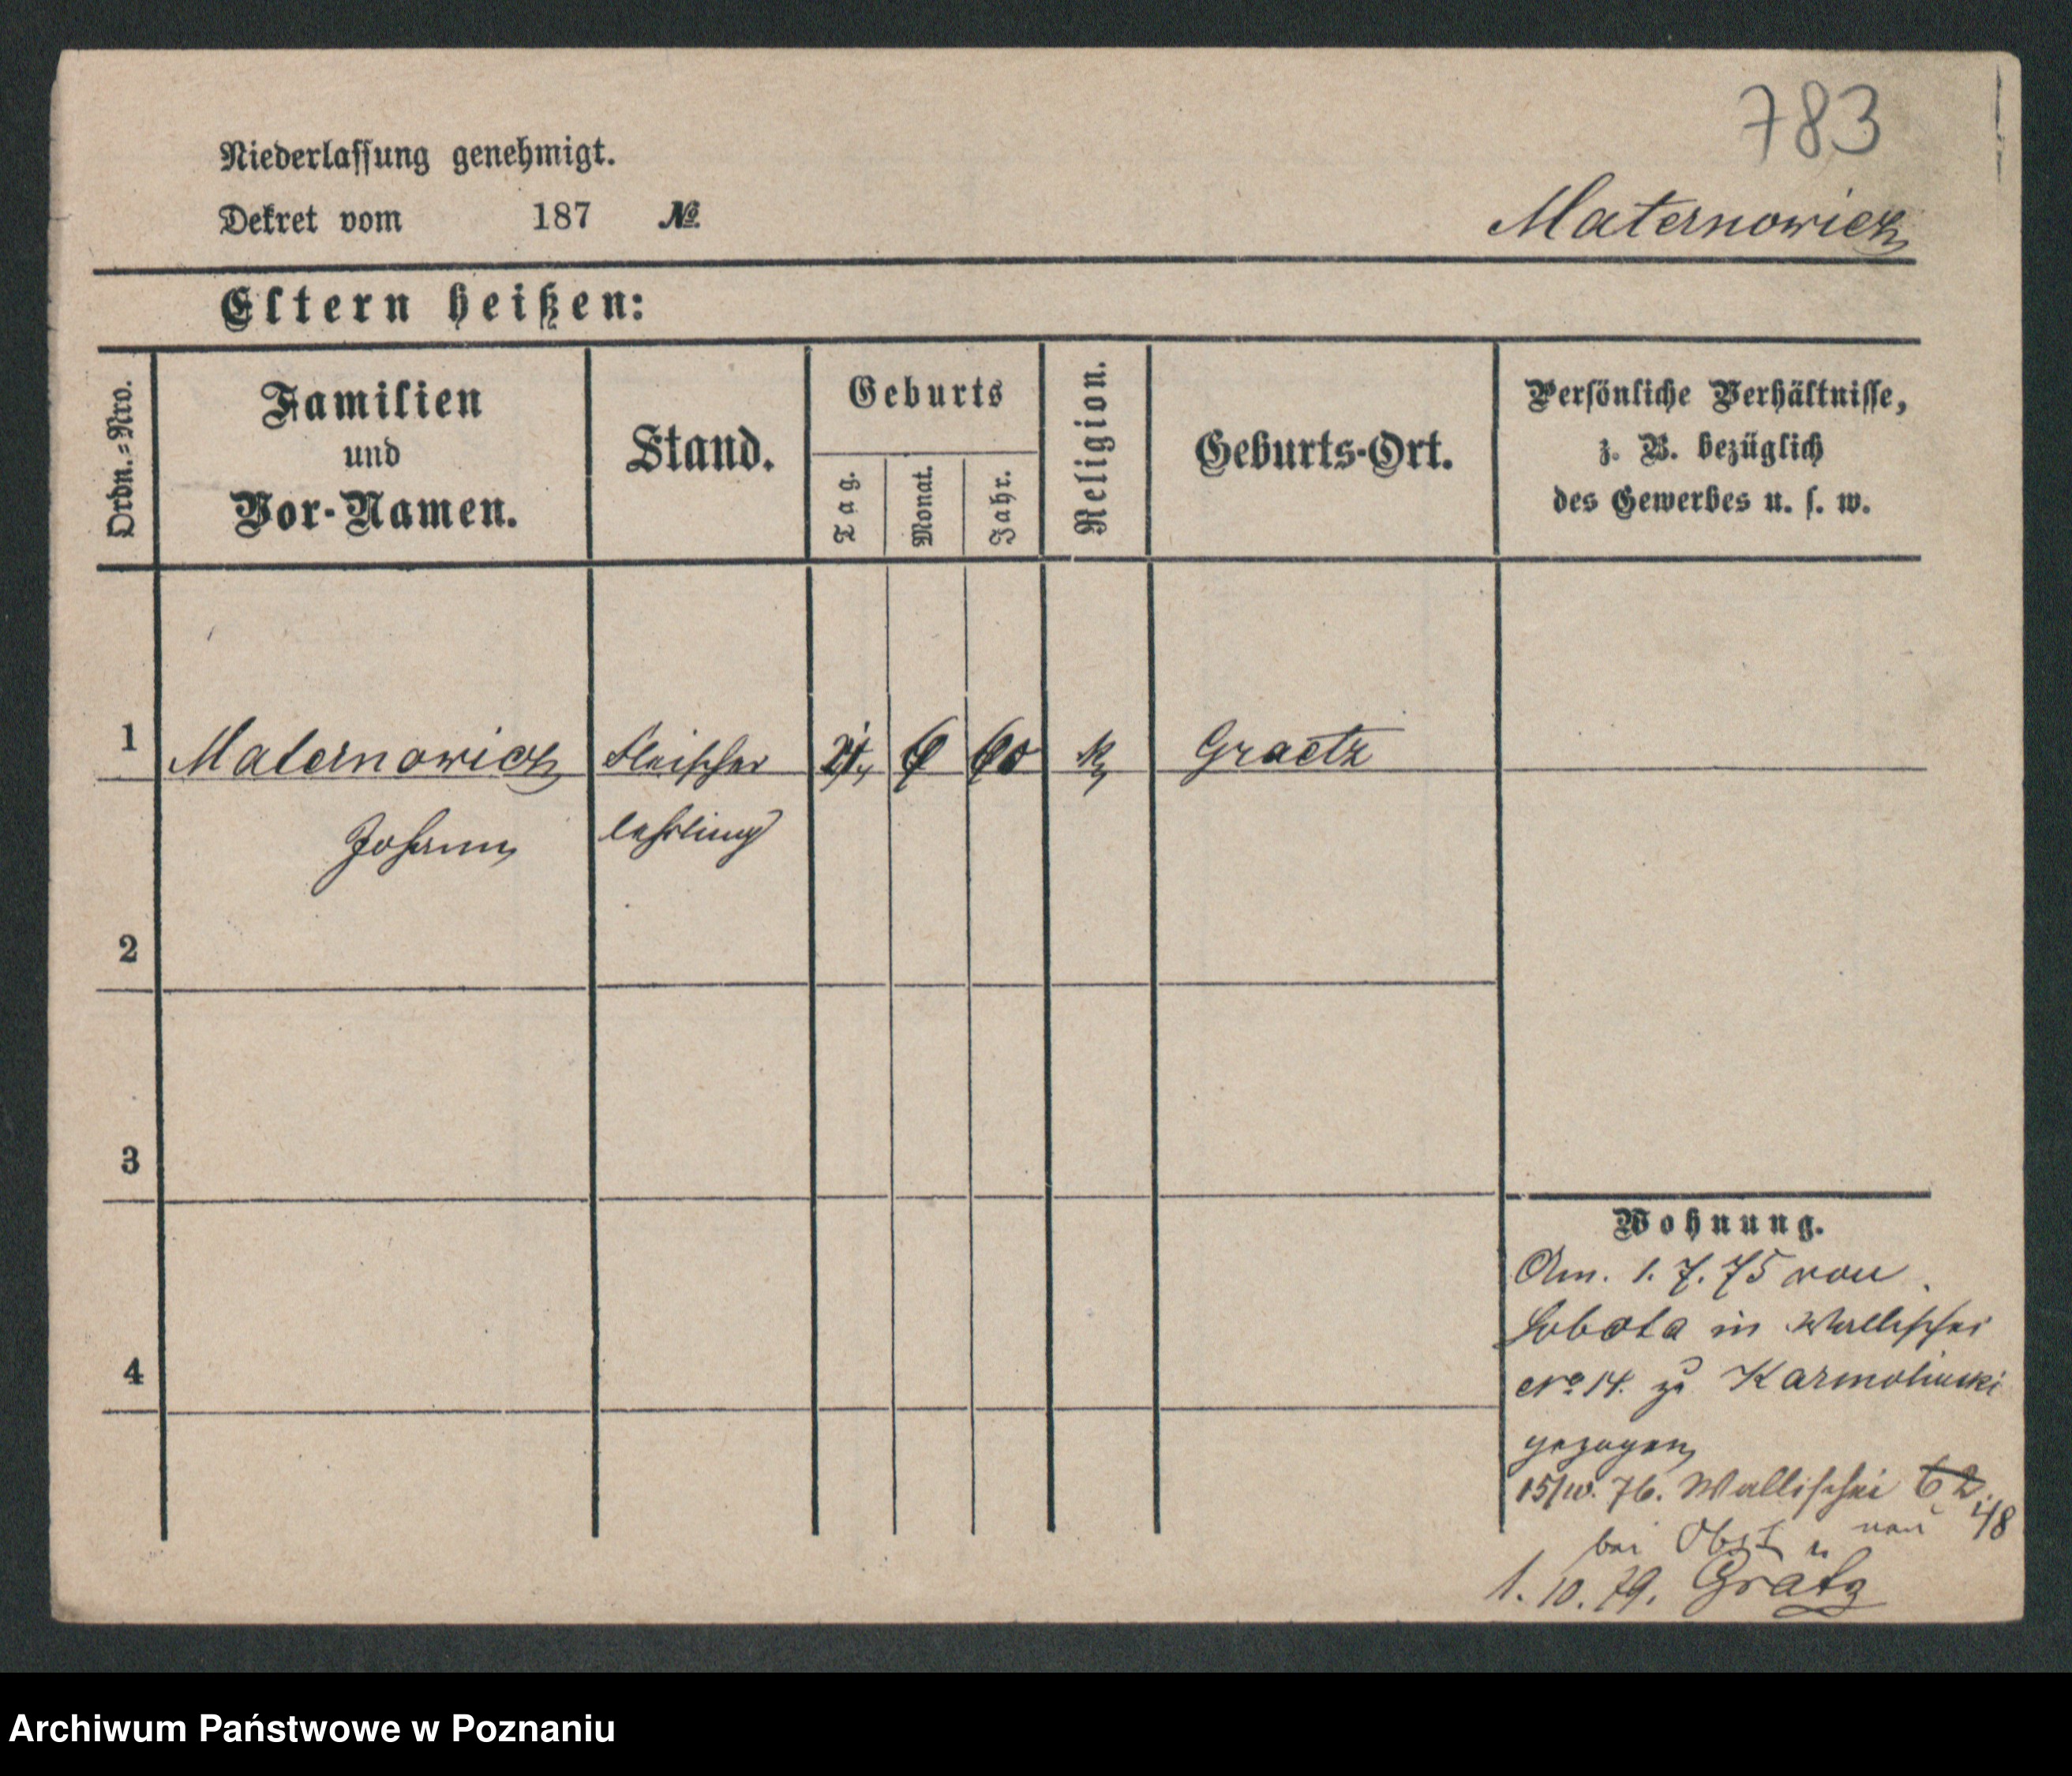 783
Niederlassung genehmigt.
Dekret vom 187 №
Maternowicz
Eltern heißen:
Ordn.-Nro.
Familien
und
Vor-Namen.
Stand.
Geburts
Tag.
Monat.
Jahr.
Religion.
Geburts-Ort.
Persönliche Verhältnisse,
z. B. bezüglich
des Gewerbes u. s. w.
1 Maternowicz Fleischer k Graetz
Johann lehrling
2
3
4
Wohnung.
Am. 1. 7. 75 von
Sobota in Wallischei
No 14. zu Karmolinski
gezogen
15/10. 76. Wallischei 62.
bei Obst u nau 48
1. 10. 79. Grätz
Archiwum Państwowe w Poznaniu